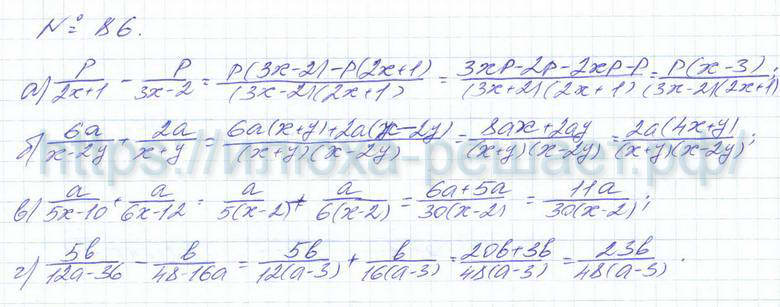 № 86.
а) p/(2x+1) - p/(3x-2) = (p(3x-2)-p(2x+1))/((3x-2)(2x+1)) = (3xp-2p-2xp-p)/((3x+2)(2x+1)) = p(x-3)/((3x-2)(2x+1));
б) 6a/(x-2y) + 2a/(x+y) = (6a(x+y)+2a(x-2y))/((x+y)(x-2y)) = (8ax+2ay)/((x+y)(x-2y)) = 2a(4x+y)/((x+y)(x-2y));
https://илюха-решает.рф/
в) a/(5x-10) + a/(6x-12) = a/(5(x-2)) + a/(6(x-2)) = (6a+5a)/(30(x-2)) = 11a/(30(x-2));
г) 5b/(12a-36) - b/(48-16a) = 5b/(12(a-3)) + b/(16(a-3)) = (20b+3b)/(48(a-3)) = 23b/(48(a-3)).